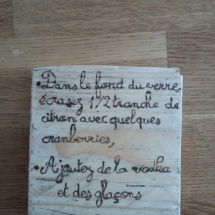 • Dans le fond du verre,
écrasez 1/2 tranche de
citron avec quelques
cranberries,
• Ajoutez de la vodka
et des glaçons